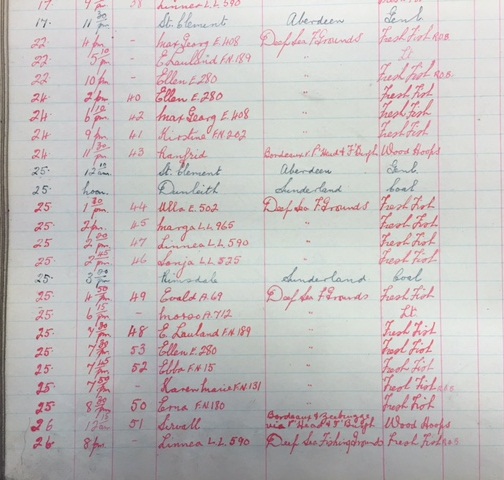 17. 4 pm 38 Linnea L.L. 590
17. 11 30 pm St. Clement Aberdeen Genl.
22 4 pm - Max Georg E.408 Deep Sea F. Grounds Fresh Fish R.O.B.
22 5 10 pm - E. Lauland F.N.189 " Lt.
22 10 pm - Ellen E.280 " Fresh Fish R.O.B.
24 2 pm 40 Ellen E.280 " Fresh Fish
24 6 10 pm 42 Max Georg E.408 " Fresh Fish
24 9 pm 41 Kirstine F.N.202 " Fresh Fish
24 11 30 pm 43 Ranfrid Bordeaux & P. Head & F. Burgh Wood Hoops
25 St. Clement Aberdeen Genl.
25. noon. Dunleith Sunderland Coal
25 1 30 pm 44 Ulla E.502 Deep Sea F. Grounds Fresh Fish
25 2 pm. 45 Marga L.L.965 " Fresh Fish
25 2 pm 47 Linnea L.L.590 " Fresh Fish
25 2 45 pm 46 Sonja L.L.525 " Fresh Fish
25. 3 pm Sunderland Coal
25 4 50 pm 49 Evald A.69 Deep Sea F. Grounds Fresh Fish
25 6 15 pm - Morso A.712 " Lt.
25. 7 30 pm 48 E. Lauland F.N.189 " Fresh Fish
25. 7 pm 53 Ellen E.280 " Fresh Fish
25. 7 45 pm 52 Ebba F.N.15 " Fresh Fish
25. 7 50 pm - Karen Marie F.N.131 " Fresh Fish R.O.B.
25 8 pm 50 Erna F.N.130 " Fresh Fish
26 51 Servall Bordeaux & Zeebrugge via P. Head & F. Burgh Wood Hoops
26. 8 pm - Linnea L.L. 590 Deep Sea Fishing Grounds Fresh Fish R.O.B.